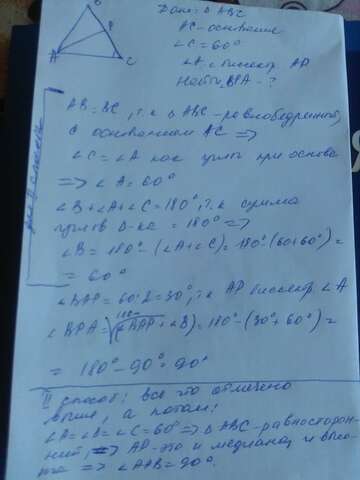 B
P
A
C
Дано: Δ ABC
AC - основание
∠C = 60°
∠A: биссект. AP
Найти: BPA - ?
AB = BC, т.к. Δ ABC - равнобедренный,
с основанием AC =>
∠C = ∠A как углы при основа
=> ∠A = 60°
∠B + ∠A + ∠C = 180°, т.к. сумма
углов Δ-ка = 180° =>
∠B = 180° - (∠A + ∠C) = 180° - (60 + 60°) =
= 60°
∠BAP = 60:2 = 30°, т.к. AP биссект. ∠A
∠BPA = 180 - (∠BAP + ∠B) = 180° - (30° + 60°) =
= 180° - 90° = 90°
II способ: все это отмечено
выше, а потом:
∠A = ∠B = ∠C = 60° => Δ ABC - равносторон-
ний, => AP - это и медиана, и высо-
та => ∠APB = 90°.
для II способа